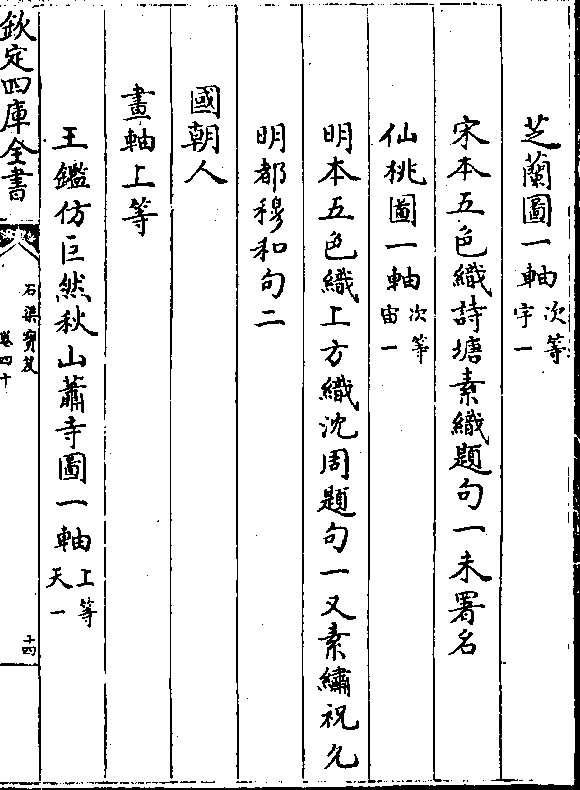 芝蘭圖一軸次等宇一
宋本五色織詩塘素織題句一未署名
仙桃圖一軸次等宙一
明本五色織上方織沈周題句一又素繡祝允
明都穆和句二
國朝人
畫軸上等
王鑑仿巨然秋山蕭寺圖一軸上等天一
欽定四庫全書
石渠寶笈
卷四十
十四